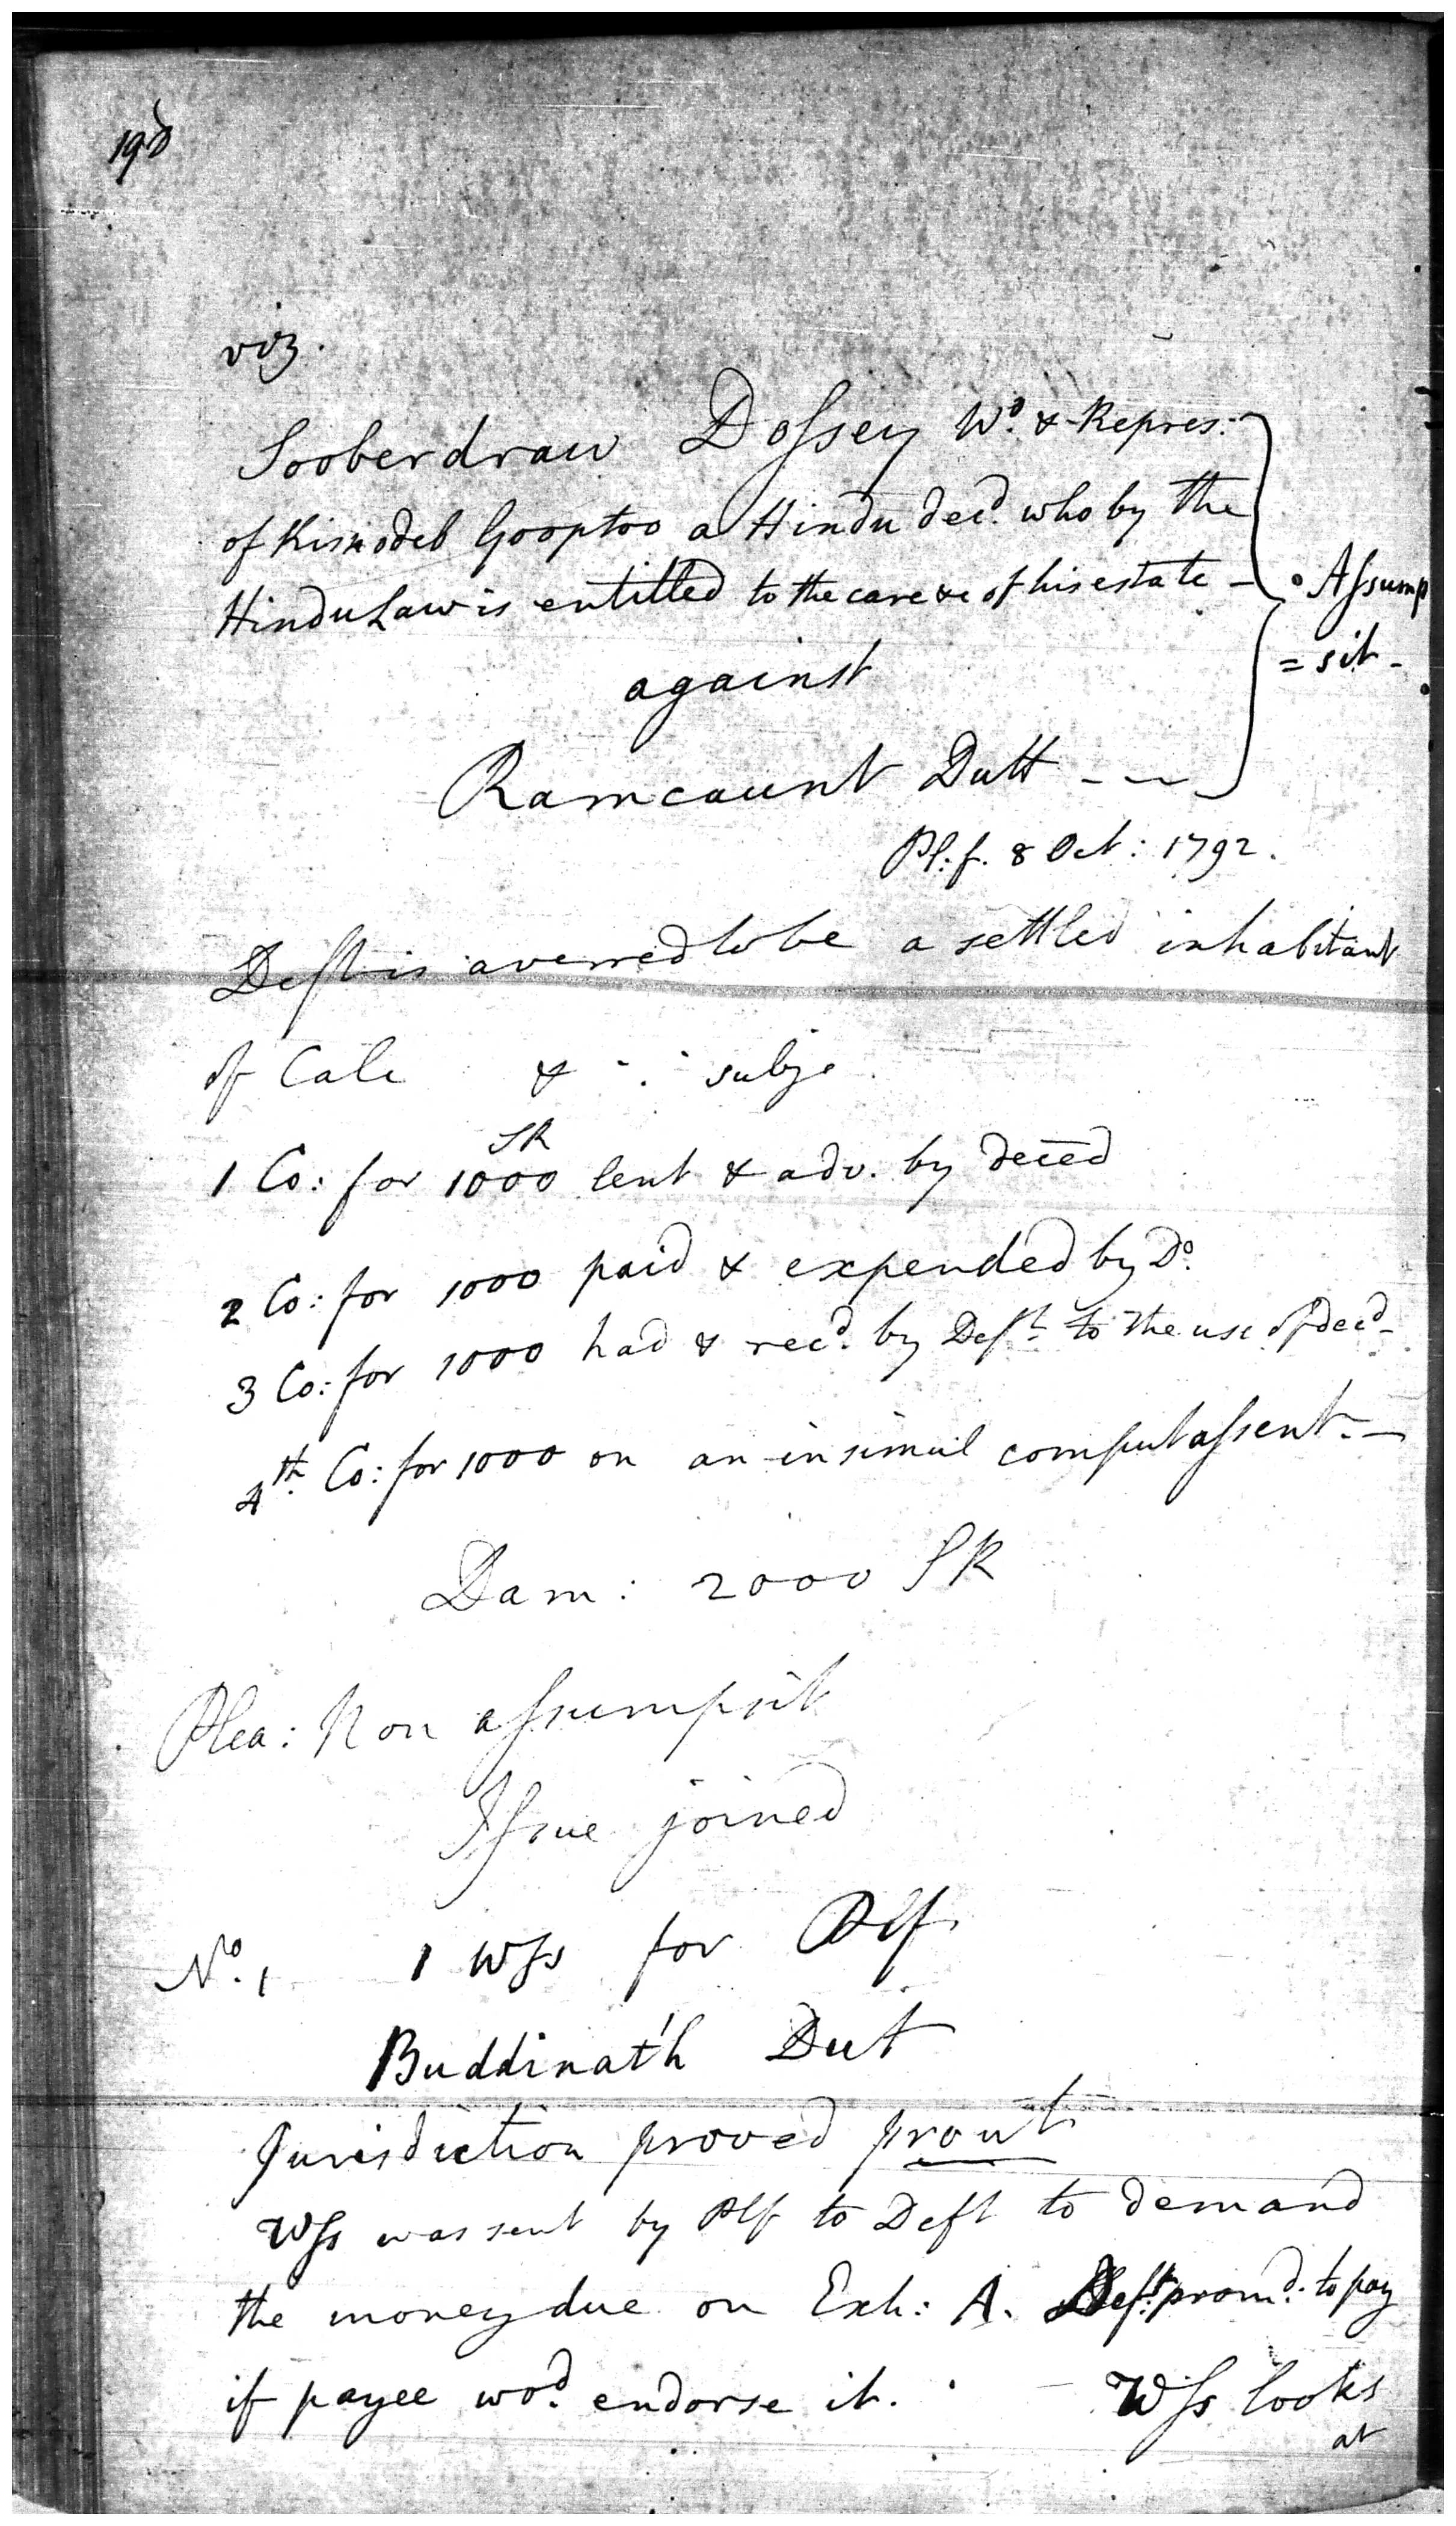 viz.
Sooberdraw Dossey Wd. & Repres:
of Kisnodeb Gooptoo a Hindu decd. who by the
Hindu Law is entitled to the care &c of his estate –
Assump
= sit –
against
Ramcaunt Dutt – – –
Pl. f. 8 Oct: 1792.
Deft is averred to be a settled inhabitant
of Calc & subje
SR
1 Co: for 1000 lent & adv. by deced
2 Co: for 1000 paid & expended by Do.
3 Co: for 1000 had & recd. by Deft. to the use of decd.
4th. Co: for 1000 on an insimul computassent. –
Dam: 2000 SR
Plea: Non assumpsit
Issue joined
No. 1 1 Wss for Plf.
Buddinath Dut
Jurisdiction proved prout
Wss was sent by Plf to Deft to demand
the money due on Exh: A. Deft. promd. to pay
if payee wod. endorse it. – Wss looks
at